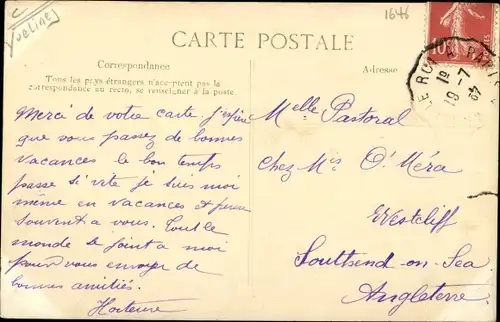 (Yveline)
1646
CARTE POSTALE
Correspondance
Tous les pays étrangers n'acceptent pas la
correspondance au recto, se renseigner à la poste.
Adresse
10
19 - 7
Merci de votre carte j'espère
que vous passez de bonnes
vacances le bon temps
passe si vite je suis moi
même en vacances et pense
souvent a vous. Tout le
monde se joint a moi
pour vous envoyer de
bonnes amitiés.
Hortense
Melle Pastoral
Chez Mrs O'Méra
Westcliff
Southend-on-Sea
Angleterre.